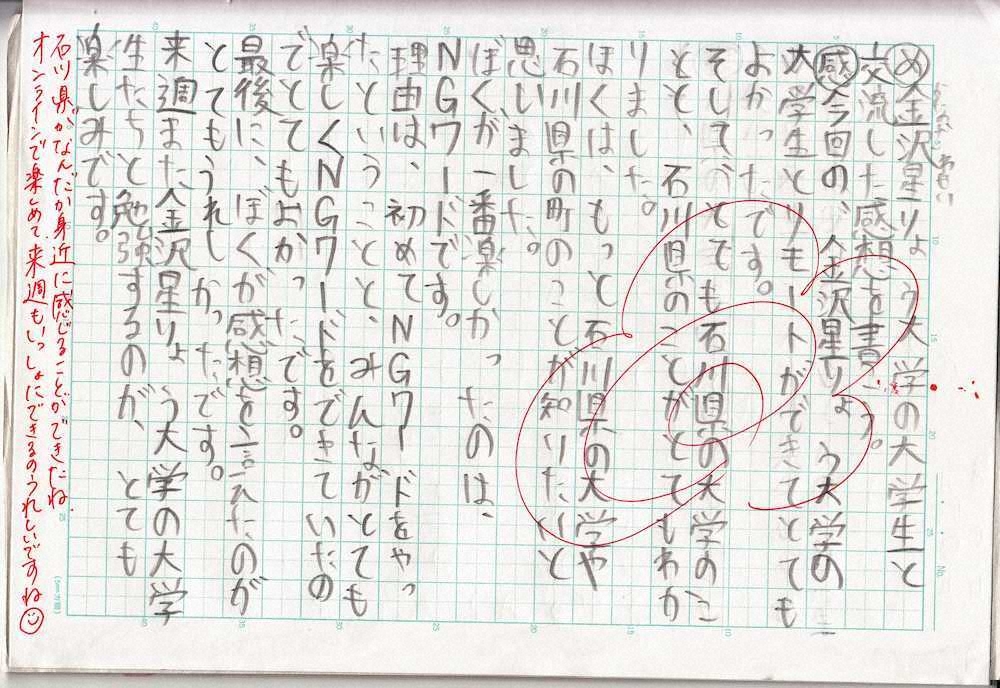 め 金沢星りょう大学の大学生と
交流した感想を書こう。
感 今回の、金沢星りょう大学の
大学生とリモートができてとても
よかったです。
そして、とても石川県の大学のこ
とと、石川県のことがとてもわか
りました。
ほくは、もっと石川県の大学や
石川県の町のことが知りたいと
思いました。
ぼくが一番楽しかったのは、
NGワードです。
理由は、初めてNGワードをやっ
たということと、みんながとても
楽しくNGワードをできていたの
でとてもよかったです。
最後に、ぼくが感想を言えたのが
とてもうれしかったです。
来週また金沢星りょう大学の大学
生たちと勉強するのが、とても
楽しみです。
石川県がなんだか身近に感じることができたね
オンラインで楽しめて来週もいっしょにできるのうれしいですね